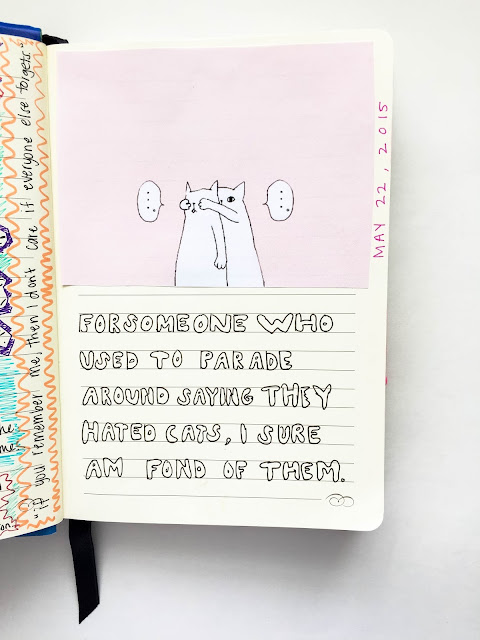 "if you remember me, then I don't care if everyone else forgets."
...
...
MAY 22, 2015
FORSOMEONE WHO
USED TO PARADE
AROUND SAYING THEY
HATED CATS, I SURE
AM FOND OF THEM.